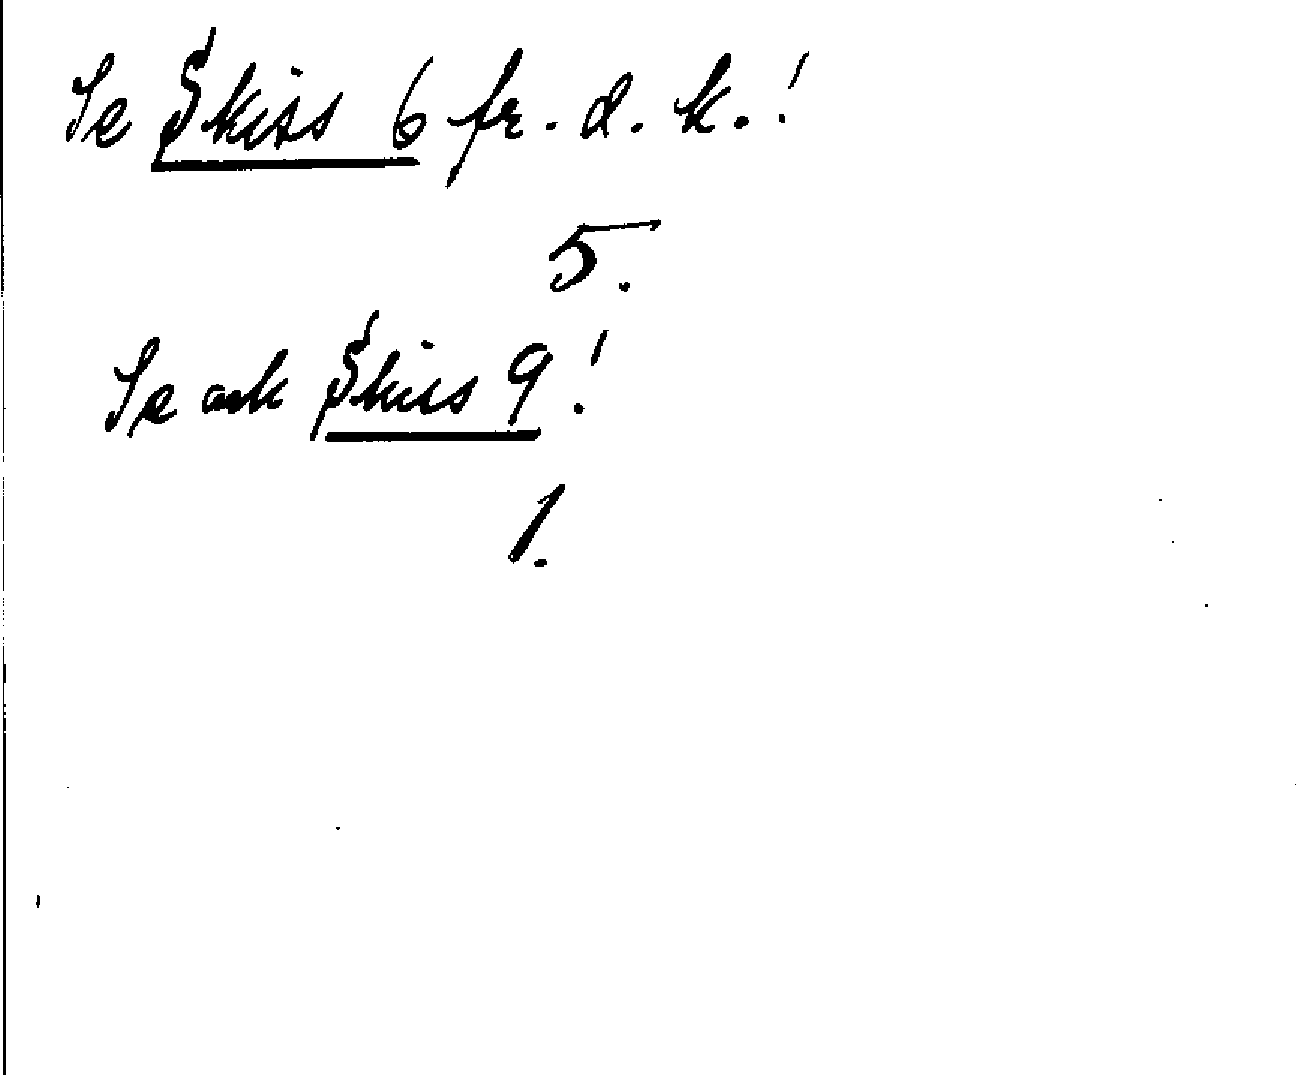 Se Skiss 6 fr. d. k.!
5.
Se ock Skiss 9!
1.